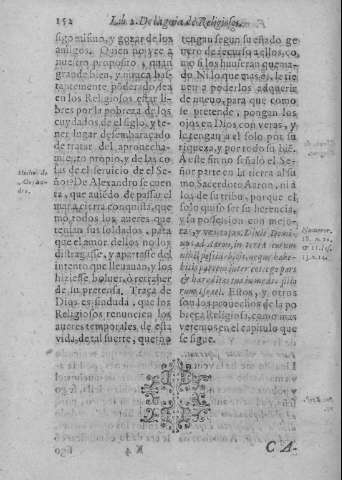 152 Lib. 2. De la guia de Religiosos.
sigo mismo, y gozar de los
amigos. Quien no vee a
nuestro proposito, quan
grande bien, y nunca bas-
tantemente põderado sea
en los Religiosos estar li-
bres por la pobreza de los
cuydados de el siglo, y te-
ner lugar desembaraçado
de tratar del aprouecha-
miento propio, y de las co-
sas de el seruicio de el Se-
ñor? De Alexandro se cuen
ta, que auiẽdo de passar el
mar a cierra conquista, que
mò todos los aueres que
tenian sus soldados, para
que el amor dellos no los
distragesse, y apartasse del
intento que lleuauan, y los
hiziesse boluer, ò retraher
de su pretensa. Traça de
Dios es sin duda, que los
Religiosos renuncien los
aueres temporales de esta
vida, de tal suerte, que no
tengan segun su estado ge
nero de recurso a ellos, co-
mo si los huuieran quema-
do. Ni lo que mas es, le tie
nen a poderlos adquerir
de nueuo, para que como
se pretende, pongan los
ojos en Dios con veras, y
le tengan a el solo por su
riqueza, y por todo su biẽ.
A este fin no señalò el Se-
ñor parte en la tierra al su
mo Sacerdote Aaron, ni à
los de su tribu, porque el
solo quiso ser su herencia,
y su possession con mejo-
ra, y ventajas. Dixit Domi-
nus ad Aaron, in terra eorum
nihil possidebitis, neque habe-
bitis partem inter eos: ego pars
& hæreditas tua in medio filio
rum Israel. Estos, y otros
son los prouechos de la po
breza Religiosa, como mas
veremos en el capitulo que
se sigue.
Numeror.
18. n. 20.
C A-